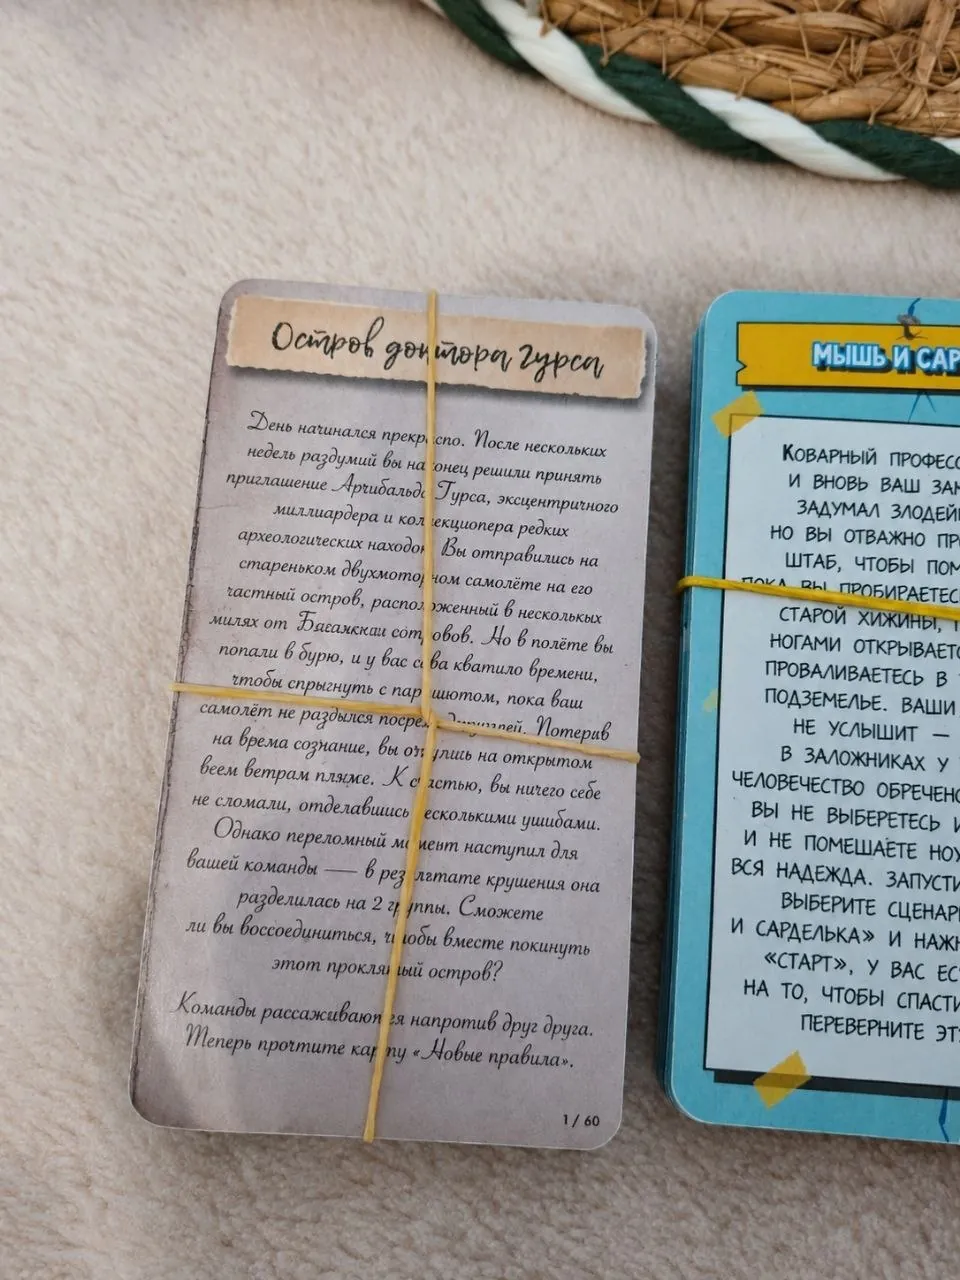 Остров доктора Гурса
День начинался прекрасно. После нескольких
недель раздумий вы наконец решили принять
приглашение Арчибальда Гурса, эксцентричного
миллиардера и коллекционера редких
археологических находок. Вы отправились на
стареньком двухмоторном самолёте на его
частный остров, расположенный в нескольких
милях от Багамских островов. Но в полёте вы
попали в бурю, и у вас едва хватило времени,
чтобы спрыгнуть с парашютом, пока ваш
самолёт не разбился посреди джунглей. Потеряв
на время сознание, вы очнулись на открытом
всем ветрам пляже. К счастью, вы ничего себе
не сломали, отделавшись несколькими ушибами.
Однако переломный момент наступил для
вашей команды — в результате крушения она
разделилась на 2 группы. Сможете
ли вы воссоединиться, чтобы вместе покинуть
этот проклятый остров?
Команды рассаживаются напротив друг друга.
Теперь прочтите карту «Новые правила».
1 / 60
МЫШЬ И САР
КОВАРНЫЙ ПРОФЕСС
И ВНОВЬ ВАШ ЗАМ
ЗАДУМАЛ ЗЛОДЕЙ
НО ВЫ ОТВАЖНО ПР
ШТАБ, ЧТОБЫ ПОМ
ПОКА ВЫ ПРОБИРАЕТЕС
СТАРОЙ ХИЖИНЫ,
НОГАМИ ОТКРЫВАЕТС
ПРОВАЛИВАЕТЕСЬ В
ПОДЗЕМЕЛЬЕ. ВАШИ
НЕ УСЛЫШИТ —
В ЗАЛОЖНИКАХ У
ЧЕЛОВЕЧЕСТВО ОБРЕЧЕНО
ВЫ НЕ ВЫБЕРЕТЕСЬ И
И НЕ ПОМЕШАЕТЕ НОУ
ВСЯ НАДЕЖДА. ЗАПУСТИ
ВЫБЕРИТЕ СЦЕНАР
И САРДЕЛЬКА» И НАЖМ
«СТАРТ», У ВАС ЕС
НА ТО, ЧТОБЫ СПАСТИ
ПЕРЕВЕРНИТЕ ЭТ